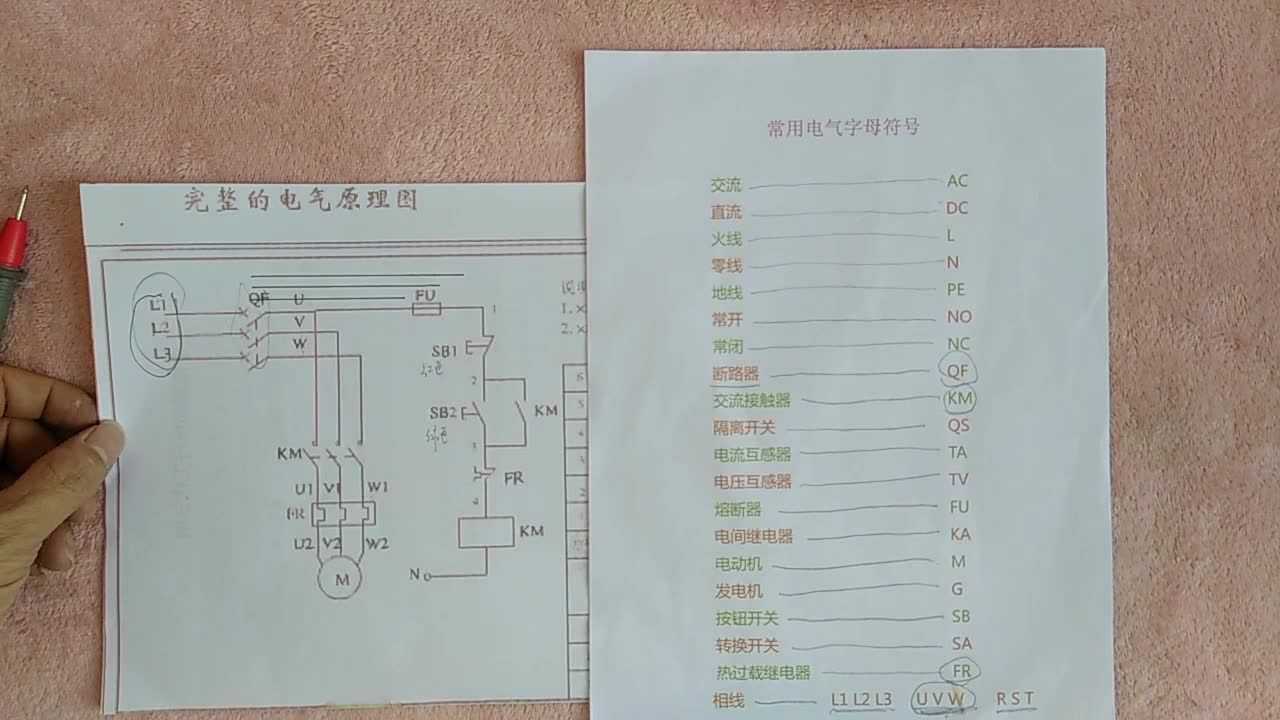 完整的电气原理图
L1
L2
L3
QF
U
V
W
FU
1
说
1.
2.
SB1
红色
2
SB2
绿色
KM
3
FR
4
KM
N
KM
U1 V1 W1
FR
U2 V2 W2
M
6
5
4
3
2
常用电气字母符号
交流 AC
直流 DC
火线 L
零线 N
地线 PE
常开 NO
常闭 NC
断路器 QF
交流接触器 KM
隔离开关 QS
电流互感器 TA
电压互感器 TV
熔断器 FU
电间继电器 KA
电动机 M
发电机 G
按钮开关 SB
转换开关 SA
热过载继电器 FR
相线 L1 L2 L3 U V W R S T